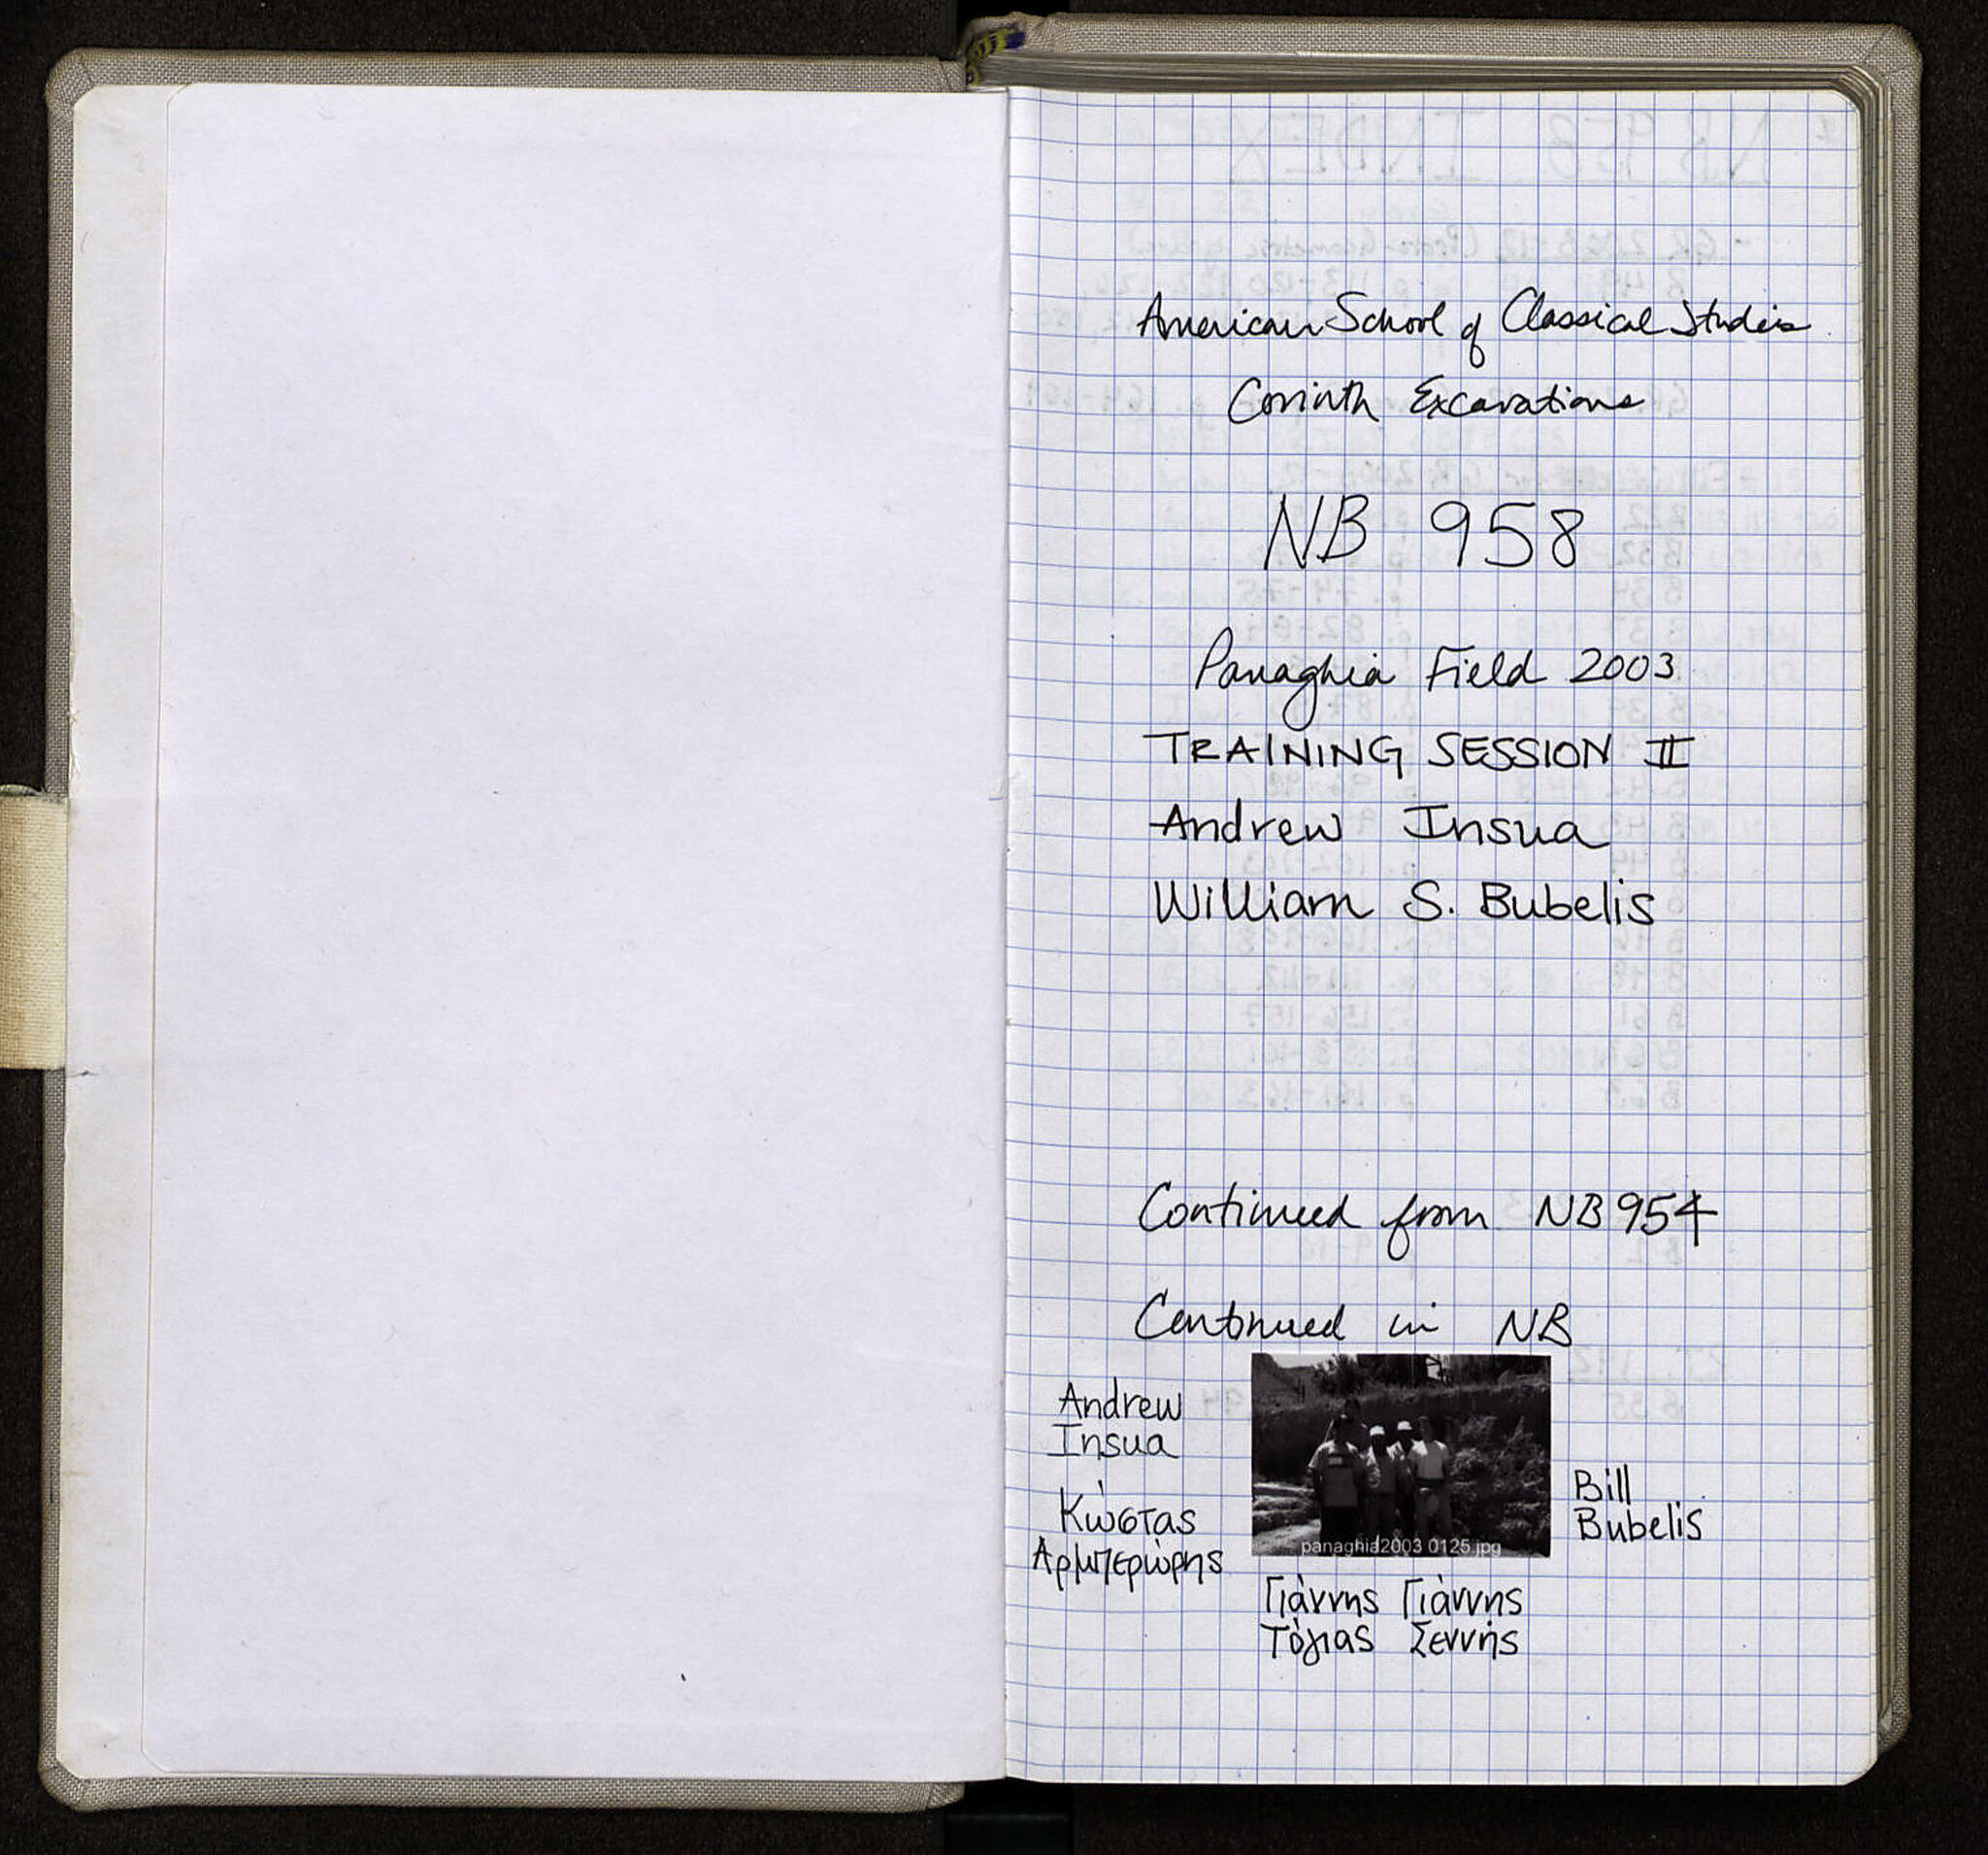 American School of Classical Studies
Corinth Excavations
NB 958
Panaghia Field 2003
TRAINING SESSION II
Andrew Insua
William S. Bubelis
Continued from NB 954
Continued in NB
Andrew
Insua
Κώστας
Αρμπερώρης
panaghia2003 0125.jpg
Bill
Bubelis
Γιάννης Γιάννης
Τόγιας Σεννής